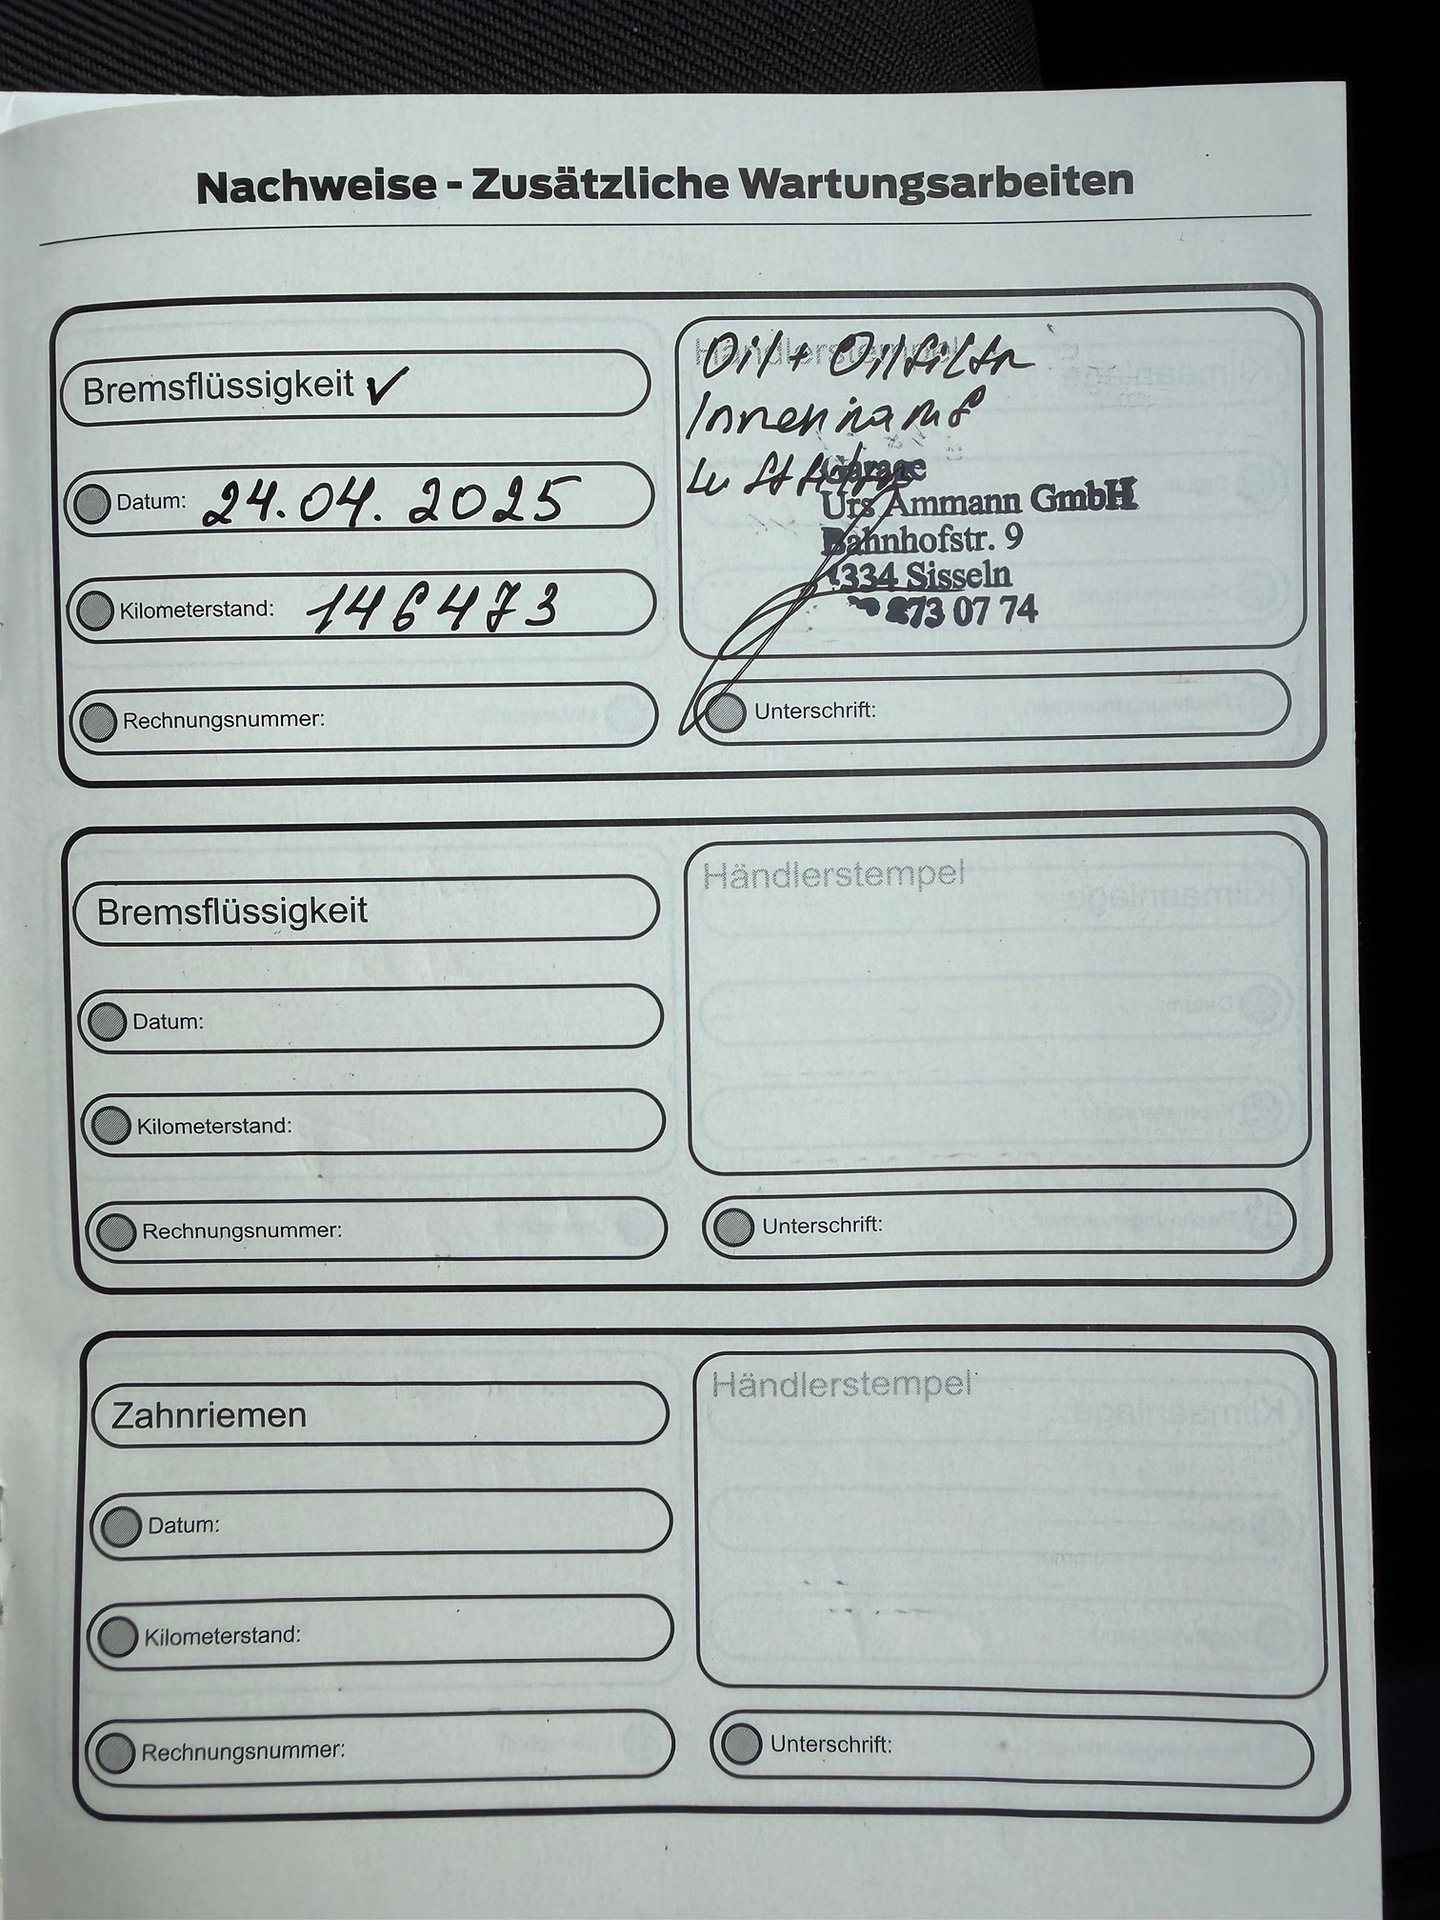 Nachweise - Zusätzliche Wartungsarbeiten
Bremsflüssigkeit ✓
Datum: 24.04.2025
Kilometerstand: 146473
Rechnungsnummer:
Händlerstempel
Oil + Oilfilter
Innenraumf
Garage
Urs Ammann GmbH
Bahnhofstr. 9
4334 Sisseln
873 07 74
Unterschrift:
Bremsflüssigkeit
Datum:
Kilometerstand:
Rechnungsnummer:
Händlerstempel
Unterschrift:
Zahnriemen
Datum:
Kilometerstand:
Rechnungsnummer:
Händlerstempel
Unterschrift: